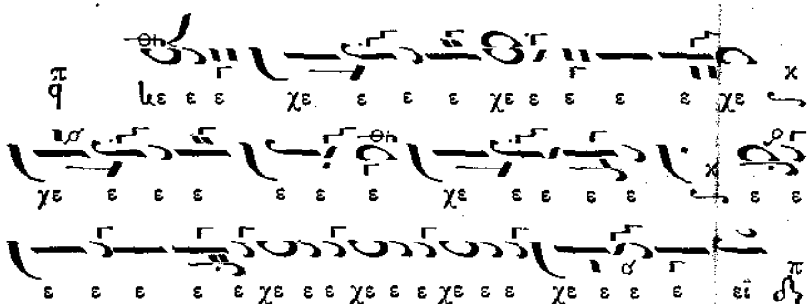 ε ε χε ε ε ε χε ε ε ε ε χε
χε ε ε ε ε χε ε ε χε ε ε ε ε ε ε
ε ε ε ε ε χε ε ε χε ε ε χε ε ε χε ε ε ε εϊ